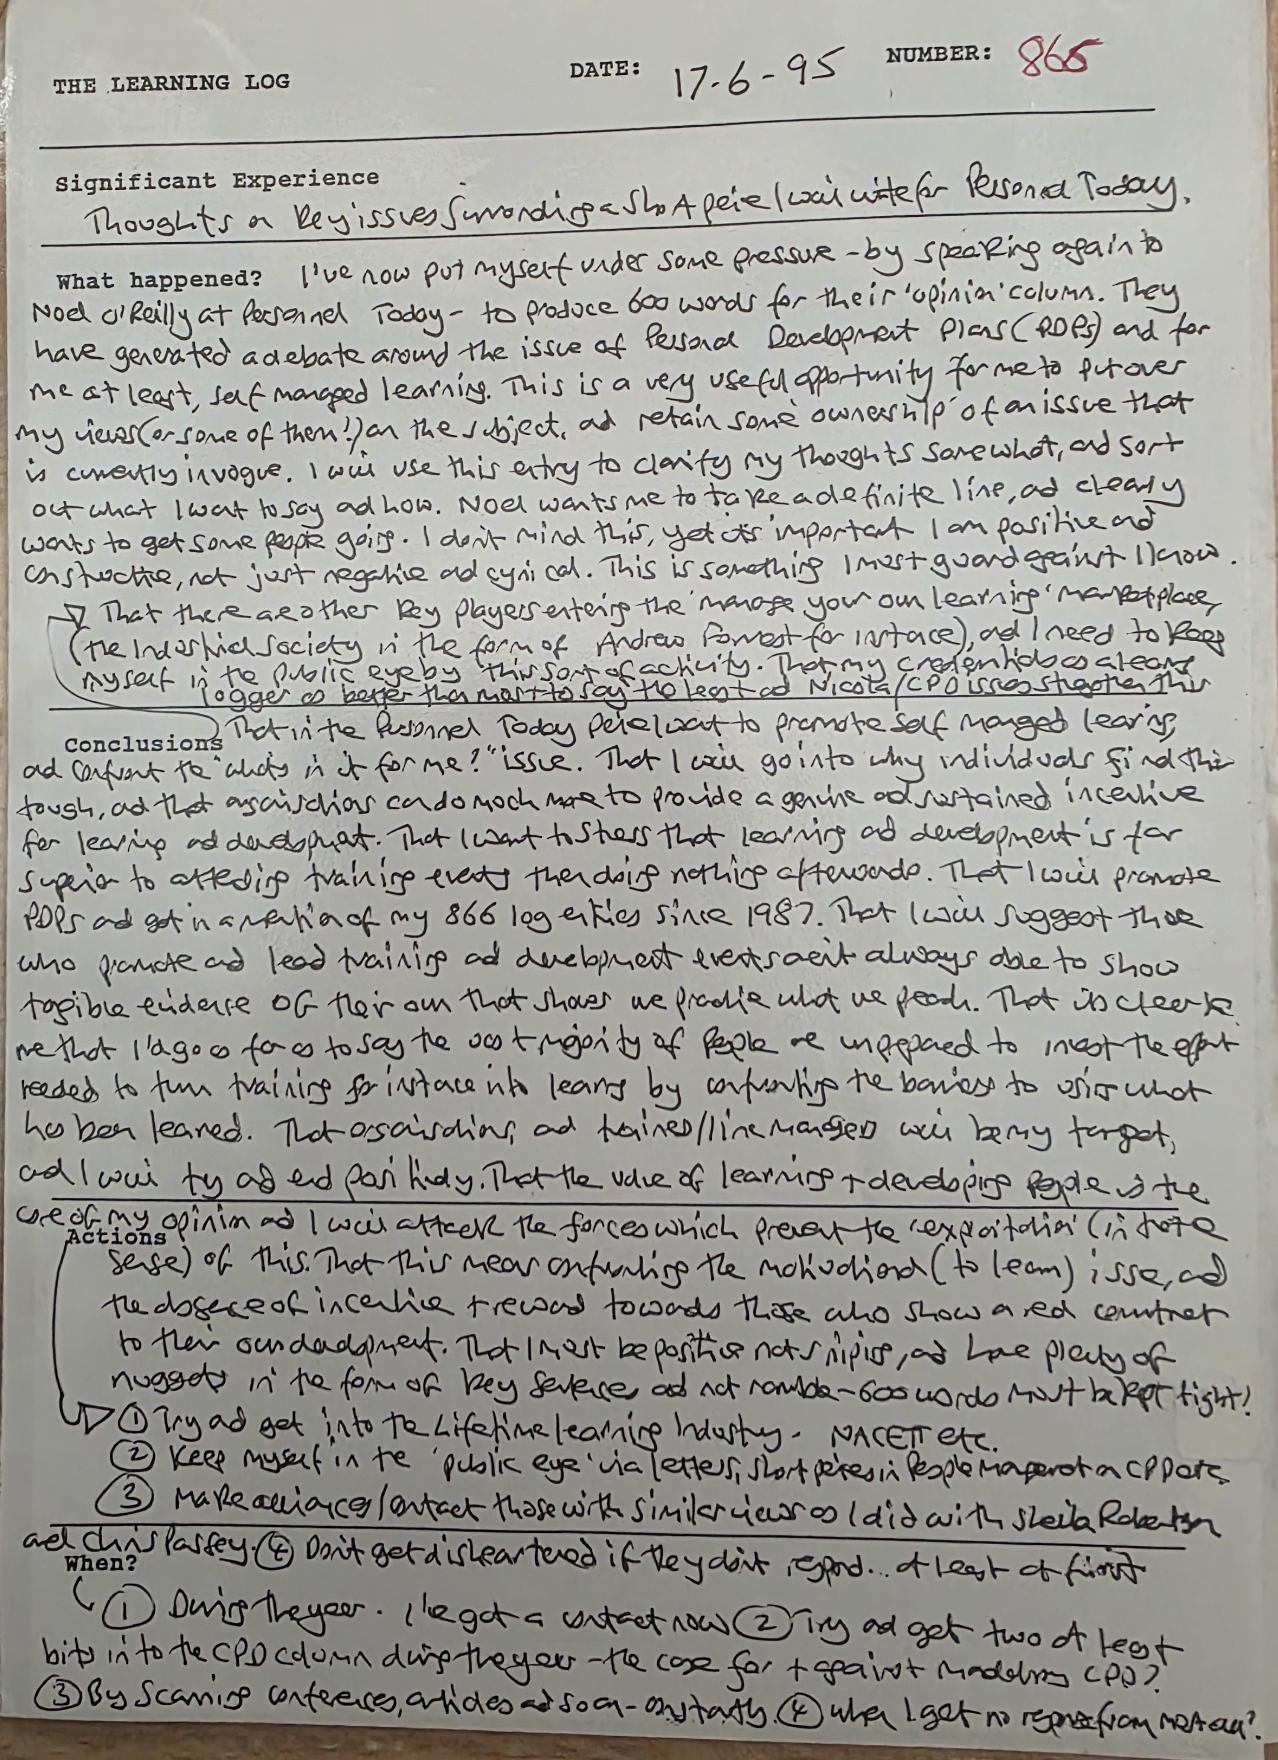 THE LEARNING LOG DATE: 17-6-95 NUMBER: 865
Significant Experience
Thoughts on key issues surrounding a short piece I will write for Personnel Today.
What happened? I've now put myself under some pressure - by speaking again to
Noel O'Reilly at Personnel Today - to produce 600 words for their 'opinion' column. They
have generated a debate around the issue of Personal Development Plans (PDPs) and for
me at least, self managed learning. This is a very useful opportunity for me to put over
my views (or some of them!) on the subject, and retain some 'ownership' of an issue that
is currently in vogue. I will use this entry to clarify my thoughts somewhat, and sort
out what I want to say and how. Noel wants me to take a definite line, and clearly
wants to get some people going. I don't mind this, yet it's important I am positive and
constructive, not just negative and cynical. This is something I must guard against I know.
That there are other key players entering the 'manage your own learning' marketplace,
(the Industrial Society in the form of Andrew Forrest for instance), and I need to keep
myself in the public eye by this sort of activity. That my credentials as a learning
logger as better than most to say the least and Nicola/CPD issues strengthen this
Conclusions That in the Personnel Today piece I want to promote self managed learning,
and confront the "what's in it for me?" issue. That I will go into why individuals find this
tough, and that organisations can do much more to provide a genuine and sustained incentive
for learning and development. That I want to stress that learning and development is far
superior to attending training events then doing nothing afterwards. That I will promote
PDPs and get in a mention of my 866 log entries since 1987. That I will suggest those
who promote and lead training and development events aren't always able to show
tangible evidence of their own that shows we practice what we preach. That it is clear to
me that I'd go as far as to say the vast majority of people are unprepared to invest the effort
needed to turn training for instance into learning by confronting the barriers to using what
has been learned. That organisations, and trainers/line managers will be my target,
and I will try and end positively. That the value of learning + developing people is the
core of my opinion and I will attack the forces which prevent the 'exploitation' (in
Actions
sense) of this. That this means confronting the motivational (to learn) issue, and
the absence of incentive + reward towards those who show a real commitment
to their own development. That I must be positive not sniping, and have plenty of
nuggets in the form of key sentences and not ramble - 600 words must be kept tight!
① Try and get into the Lifetime learning Industry - NACETT etc.
② Keep myself in the 'public eye' via letters, short pieces in People Management on CPD etc.
③ Make alliances/contact those with similar views as I did with Sheila Robertson
and Chris Passey. ④ Don't get disheartened if they don't respond... at least at first
When?
① During the year. I've got a contact now ② Try and get two at least
bits into the CPD column during the year - the case for + against mandatory CPD?
③ By scanning conferences, articles and so on - constantly. ④ When I get no response from